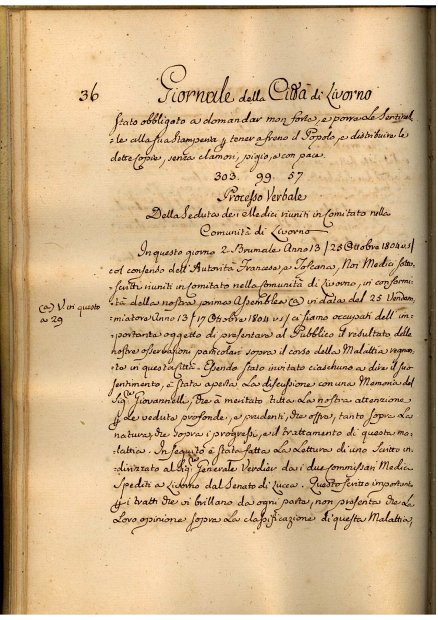 36 Giornale della Città di Livorno
stato obbligato a domandar man forte, e porre le Sentinel-
le alla sua Stamperia p tener a freno il Popolo, e distribuire le
dette Copie, senza clamori, pigio, e con pace.
303. 99. 57
Processo Verbale
Della Seduta dei Medici riuniti in Comitato nella
Comunità di Livorno
In questo giorno 2 Brumale Anno 13/ 25 Ottobre 1804 v.s/
col consenso dell'Autorità Francese, e Toscana, Noi Medici sotto-
scritti riuniti in Comitato nella Comunità di Livorno, in conformi-
tà della nostra prima Assemblea (a) in data del 25 Vendem-
(a) V. in questo
a 29
miatore Anno 13/ 17 Ottobre 1804 v.s/ ci siamo occupati dell'im-
portante oggetto di presentare al Pubblico il resultato delle
nostre osservazioni particolari sopra il corso della Malattia regnan-
te in questa Città. Essendo stato invitato ciaschuno a dire il suo
sentimento, è stata aperta la discussione con una Memoria del
Sig.re Giovannelli, che à meritato tutta la nostra attenzione
p le vedute profonde, e prudenti, che offre, tanto sopra la
natura, che sopra i progressi, e il trattamento di questa ma-
lattia. In seguito è stata fatta la lettura di uno scritto in-
dirizzato al Sig.re Generale Verdier da i due Commissari Medici
spediti a Livorno dal Senato di Lucca. Questo scritto importante
p i tratti che vi brillano da ogni parte, non presenta che la
loro opinione sopra la classificazione di questa Malattia,